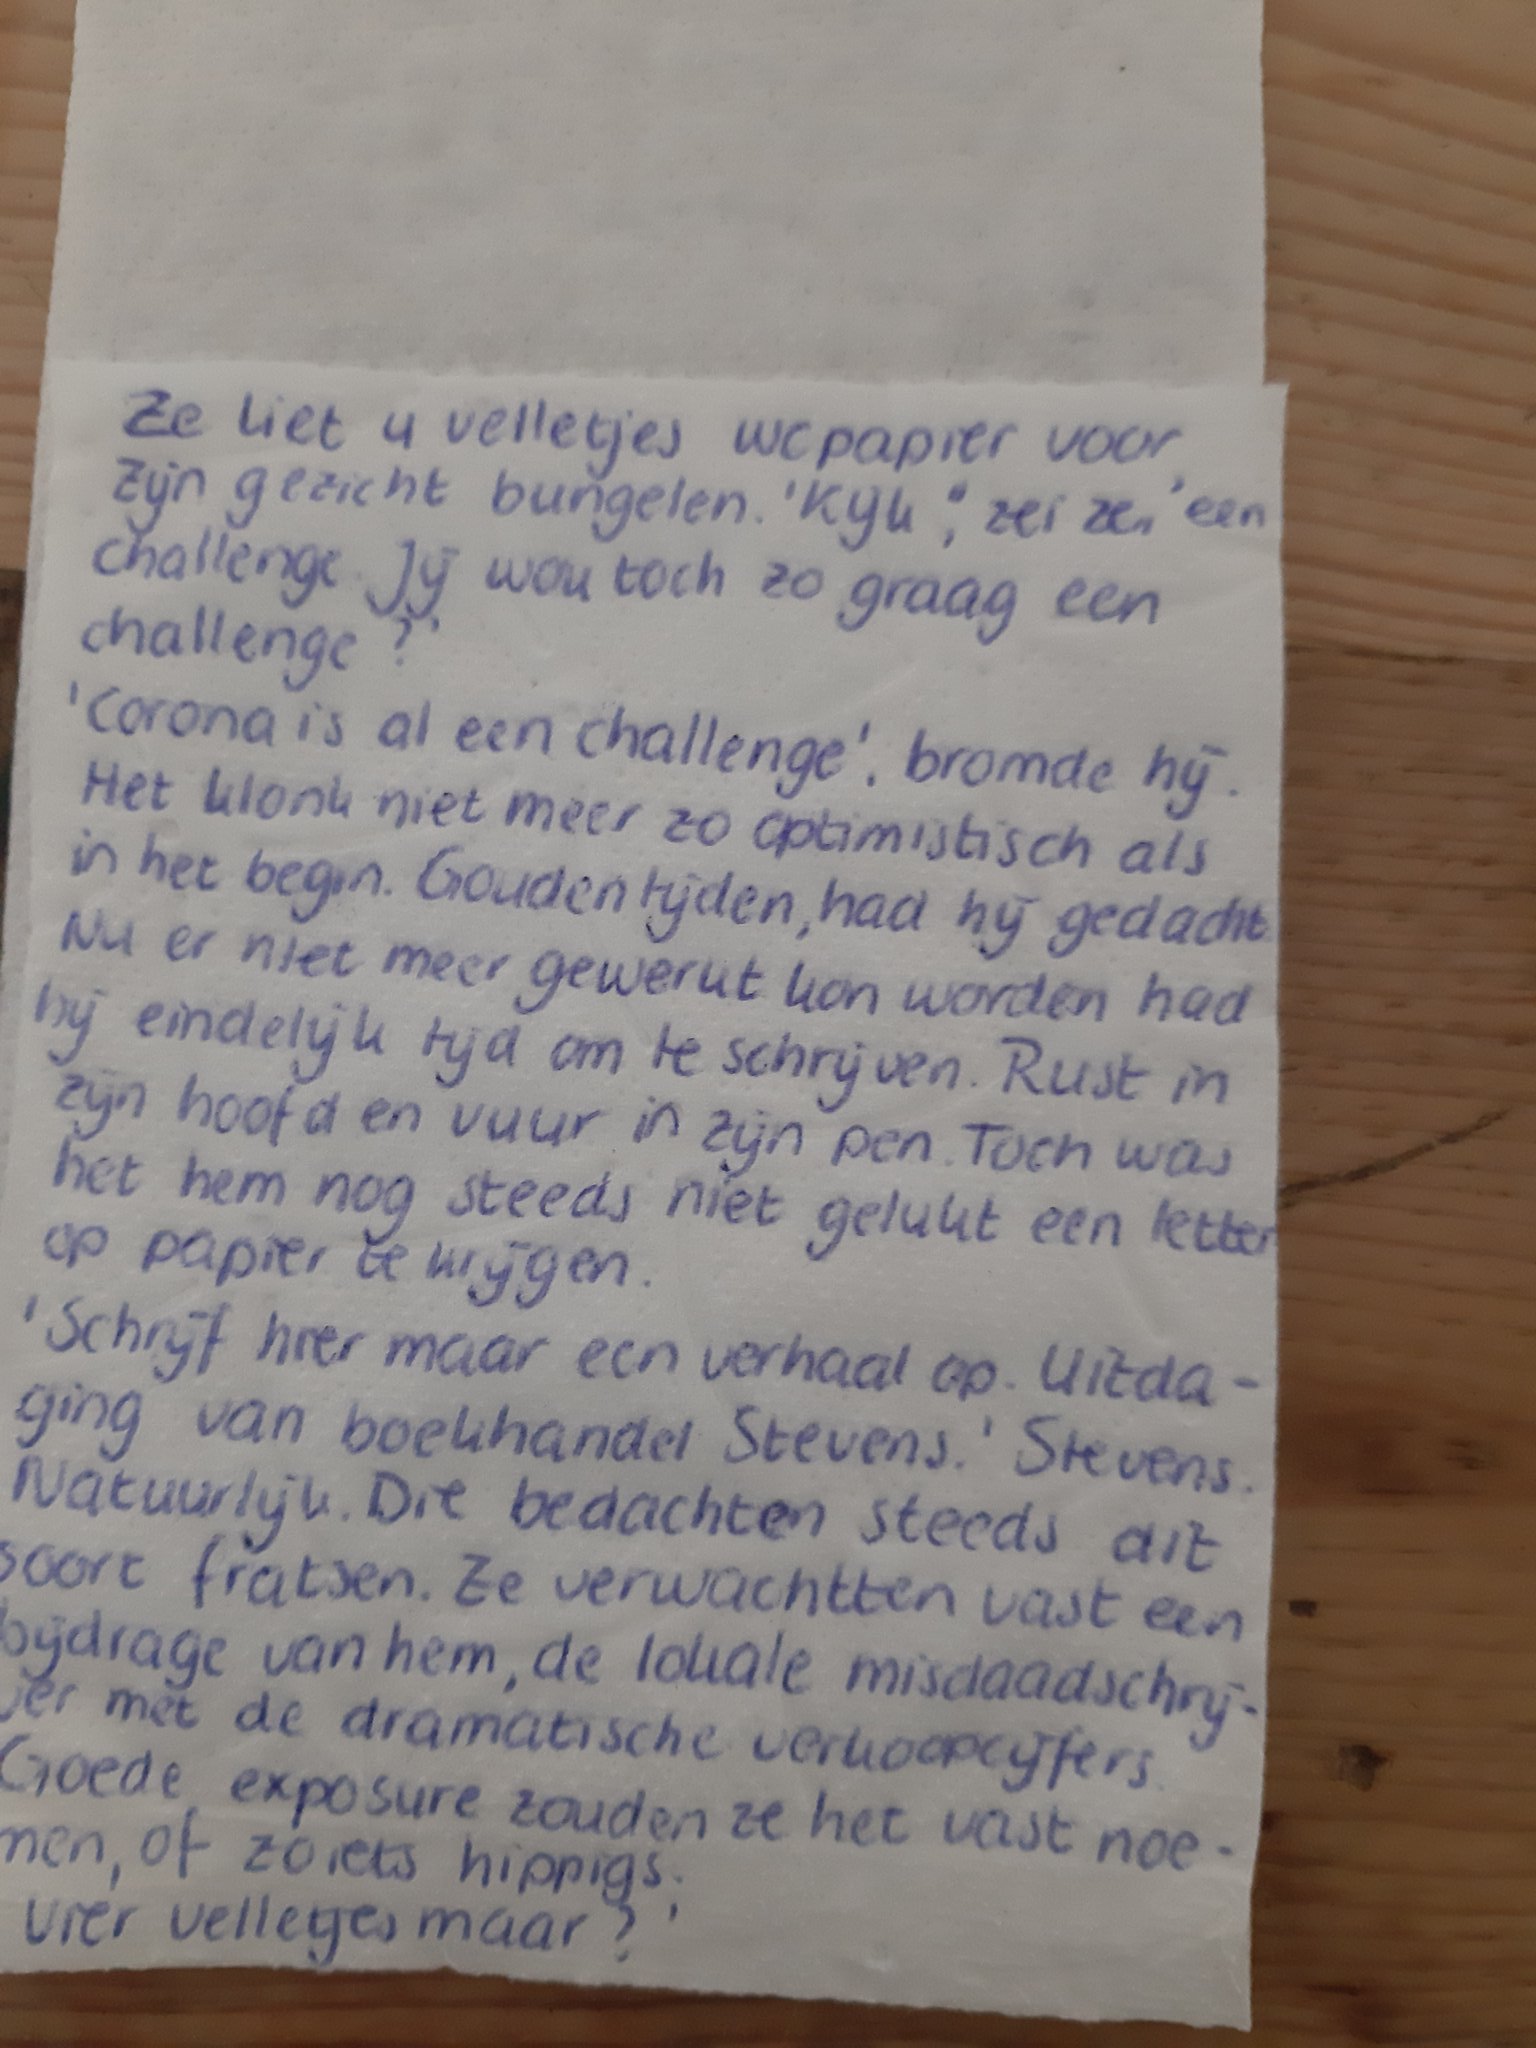 Ze liet 4 velletjes wcpapier voor
zijn gezicht bungelen. 'Kijk', zei ze, 'een
challenge. Jij wou toch zo graag een
challenge?'
'Corona is al een challenge', bromde hij.
Het klonk niet meer zo optimistisch als
in het begin. Gouden tijden, had hij gedacht.
Nu er niet meer gewerkt kon worden had
hij eindelijk tijd om te schrijven. Rust in
zijn hoofd en vuur in zijn pen. Toch was
het hem nog steeds niet gelukt een letter
op papier te krijgen.
'Schrijf hier maar een verhaal op. Uitda-
ging van boekhandel Stevens.' Stevens.
Natuurlijk. Die bedachten steeds dit
soort fratsen. Ze verwachtten vast een
bijdrage van hem, de lokale misdaadschrij-
ver met de dramatische verkoopcijfers.
Goede exposure zouden ze het vast noe-
men, of zoiets hippigs.
Vier velletjes maar?'